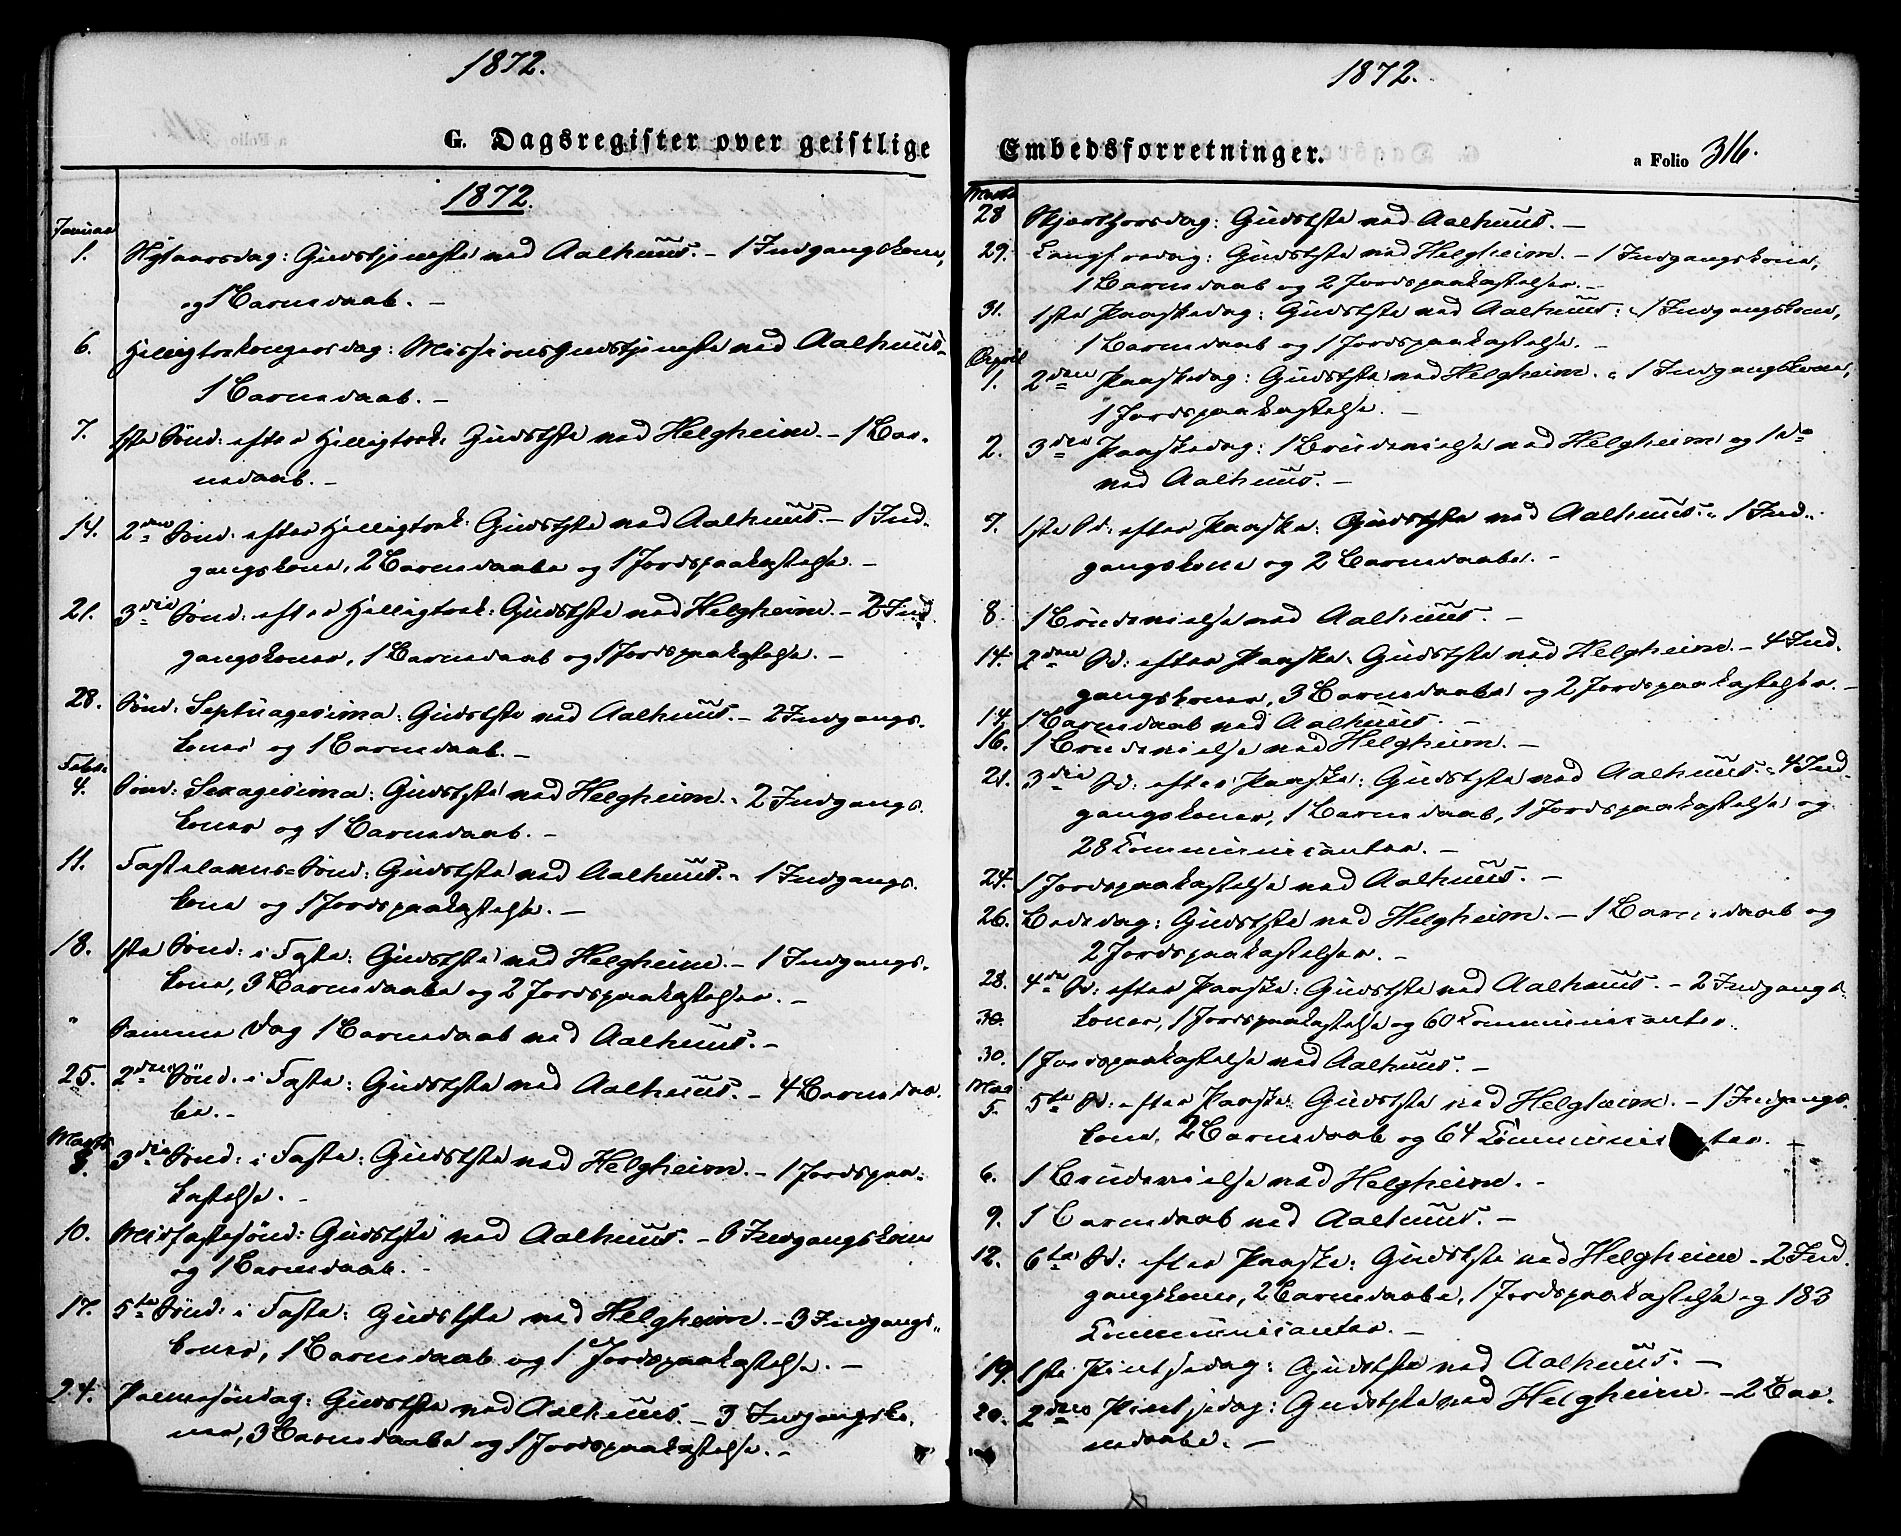 1872.
G. Dagsregister over geistlige
1872.
Januar
1. Nytaarsdag: Gudstjeneste ved Aalhuus. - 1 Indgangskone,
og 1 Barnedaab. -
6. Helligtrekongersdag: Missionsgudstjeneste ved Aalhuus. -
1 Barnedaab. -
7. 1ste Sønd: efter Helligtrek: Gudstste ved Helgheim. - 1 Bar-
nedaab. -
14. 2den Sønd: efter Helligtrek: Gudstste ved Aalhuus. - 1 Ind-
gangskone, 2 Barnedaabe og 1 Jordspaakastelse. -
21. 3die Sønd: efter Helligtrek: Gudstste ved Helgheim. - 2 Ind-
gangskoner, 1 Barnedaab og 1 Jordspaakastelse. -
28. Sønd: Septuagesima: Gudstste ved Aalhuus. - 2 Indgangs-
koner og 1 Barnedaab. -
Febr.
4. Sønd: Sexagesima: Gudstste ved Helgheim. - 2 Indgangs-
koner og 1 Barnedaab. -
11. Fastelavns-Sønd: Gudstste ved Aalhuus. - 1 Indgangs-
kone og 1 Jordspaakastelse. -
18. 1ste Sønd: i Faste: Gudstste ved Helgheim. - 1 Indgangs-
kone, 3 Barnedaabe og 2 Jordspaakastelser. -
" Samme Dag 1 Barnedaab ved Aalhuus. -
25. 2den Sønd: i Faste: Gudstste ved Aalhuus. - 4 Barnedaa-
be. -
Marts
3. 3die Sønd: i Faste: Gudstste ved Helgheim. - 1 Jordspaa-
kastelse. -
10. Midfastesønd: Gudstste ved Aalhuus. - 3 Indgangskoner
og 1 Barnedaab. -
17. 5te Sønd: i Faste: Gudstste ved Helgheim. - 3 Indgangs-
koner, 1 Barnedaab og 1 Jordspaakastelse. -
24. Palmesøndag: Gudstste ved Aalhuus. - 3 Indgangsko-
ner, 3 Barnedaabe og 1 Jordspaakastelse. -
1872.
Embedsforretninger.
a Folio 316.
Marts
28 Skjærthorsdag: Gudstste ved Aalhuus. -
29. Langfredag: Gudstste ved Helgheim. - 1 Indgangskone,
1 Barnedaab og 2 Jordspaakastelser. -
31. 1ste Paaskedag: Gudstste ved Aalhuus: 1 Indgangskone,
1 Barnedaab og 1 Jordspaakastelse. -
April
1. 2den Paaskedag: Gudstste ved Helgheim. - 1 Indgangskone,
1 Jordspaakastelse. -
2. 3die Paaskedag: 1 Brudevielse ved Helgheim og 1 do
ved Aalhuus. -
7. 1ste Sd: efter Paaske: Gudstste ved Aalhuus. - 1 Ind-
gangskone og 2 Barnedaabe. -
8. 1 Brudevielse ved Aalhuus. -
14. 2den Sd: efter Paaske: Gudstste ved Helgheim. - 4 Ind-
gangskoner, 3 Barnedaabe og 2 Jordspaakastelser. -
14. 1 Barnedaab ved Aalhuus. -
16. 1 Brudevielse ved Helgheim. -
21. 3die Sd: efter Paaske: Gudstste ved Aalhuus. - 4 Ind-
gangskoner, 1 Barnedaab, 1 Jordspaakastelse og
28 Communicanter. -
24. 1 Jordspaakastelse ved Aalhuus. -
26. Bededag: Gudstste ved Helgheim. - 1 Barnedaab og
2 Jordspaakastelser. -
28. 4de Sd: efter Paaske: Gudstste ved Aalhuus. - 2 Indgangs-
30. koner, 1 Jordspaakastelse og 60 Communicanter.
30. 1 Jordspaakastelse ved Aalhuus. -
Mai
5. 5te Sd: efter Paaske: Gudstste ved Helgheim. - 1 Indgangs-
kone, 2 Barnedaab og 64 Communicanter. -
6. 1 Brudevielse ved Helgheim. -
9. 1 Barnedaab ved Aalhuus. -
12. 6te Sd: efter Paaske: Gudstste ved Helgheim - 2 Ind-
gangskoner, 2 Barnedaabe, 1 Jordspaakastelse og 183
Communicanter. -
19. 1ste Pintsedag: Gudstste ved Aalhuus. -
20. 2den Pintsedag: Gudstste ved Helgheim. - 2 Bar-
nedaabe. -